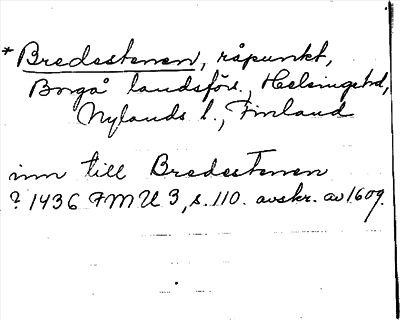 * Bredestenen, råpunkt,
Borgå landsförs., Helsingstad,
Nylands l., Finland
inn till Bredestenen
? 1436 FMU 3, s. 110. avskr. av 1609.